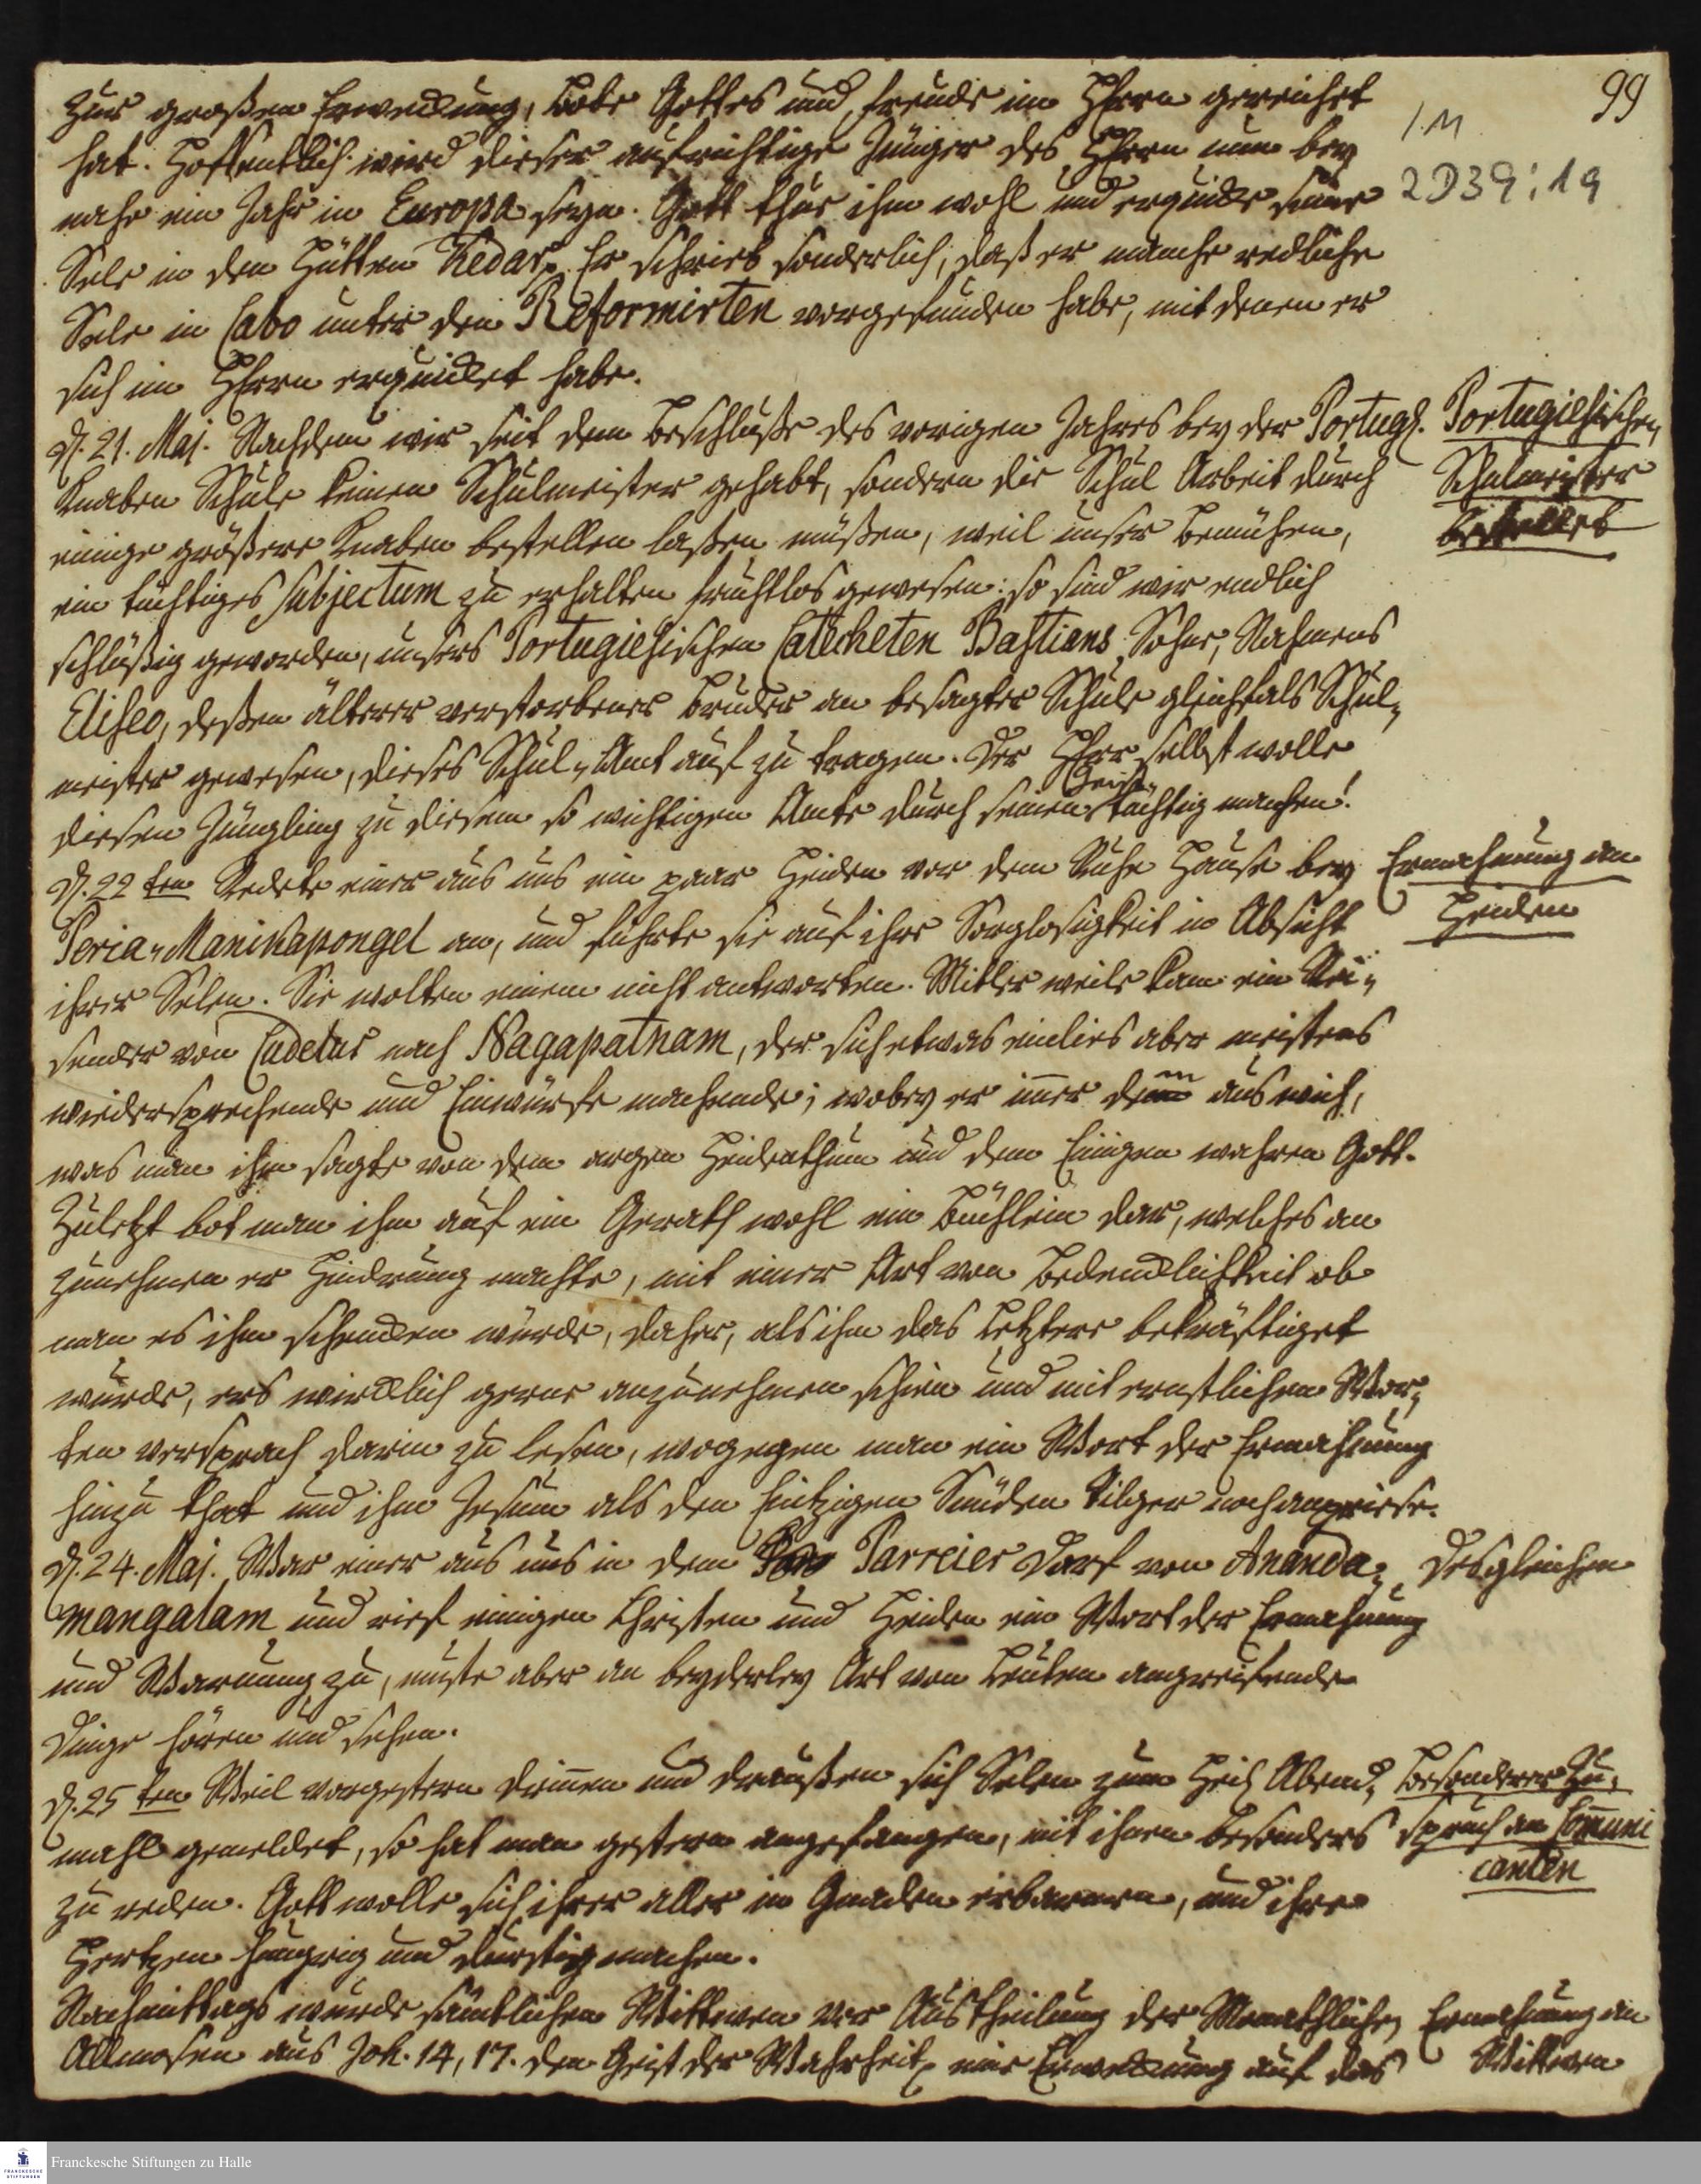 99
1 M
2 D39:19
zur großen Erweckung, Lobe Gottes und Freude im HErrn gereichet
hat. Hoffentlich wird dieser aufrichtige Jünger des HErrn nun bey
nahe ein Jahr in Europa seyn. Gott thue ihm wohl und erquicke seine
Sele in den Hütten Kedar. Er schrieb sonderlich, daß er manche redliche
Sele in Cabo unter den Reformirten vorgefunden habe, mit denen er
sich im HErrn erquicket habe.
D. 21. Maj. Nachdem wir seit dem Beschluße des vorigen Jahres bey der Portugs.
Portugiesischer
Schulmeister
bestellet
Knaben Schule keinen Schulmeister gehabt, sondern die Schul Arbeit durch
einige größere Knaben bestellen laßen müßen, weil unser Bemühen,
ein tüchtiges subjectum zu erhalten fruchtlos gewesen: so sind wir endlich
schlüßig geworden, unsers Portugiesischen Catecheten Bastians Sohne, Nahmens
Eliseo, deßen älterer verstorbener Bruder an besagter Schule gleichfals Schul-
meister gewesen, dieses Schul-Amt auf zu tragen. Der HErr selbst wolle
diesen Jüngling zu diesem so wichtigen Amte durch seinen Geist tüchtig machen!
D. 22ten Redete einer aus uns ein paar Heiden vor dem Ruhe Hause bey
Ermahnung an
Heiden
Peria-Manikapongel an, und führte sie auf ihre Sorglosigkeit in Absicht
ihrer Selen. Sie wolten einem nicht antworten. Mitler weile kam ein Rei-
sender von Cudelur nach Nagapatnam, der sich etwas einlies aber meistens
wiedersprechende und Einwürfe machende; wobey er imer dem aus wich,
was man ihm sagte von dem argen Heidenthum und dem Einigen wahren Gott.
Zuletzt bot man ihm auf ein Gerath wohl ein Büchlein dar, welches an
zunehmen er Hindrung machte, mit einer Art von Bedencklichkeit ob
man es ihm schencken würde, daher, als ihm das Letztere bekräftiget
wurde, ers wircklich gerne anzunehmen schien und mit ernstlichen Wor-
ten versprach darin zu lesen, wogegen man ein Wort der Ermahnung
hinzu that und ihm Jesum als den Eintzigen Sünden Tilger noch anpriese.
D. 24. Maj. War einer aus uns in dem Parreier Dorf von Ananda-
Desgleichen
mangalam und rief einigen Christen und Heiden ein Wort der Ermahnung
und Warnung zu, muste aber an beyderley Art von Leuten angreifende
Dinge hören und sehen.
D. 25ten Weil vorgestern drinnen und draußen sich Selen zum Heil. Abend-
Besonderer Zu-
spruch an Comuni
canten
mahl gemeldet, so hat man gestern angefangen, mit ihnen besonders
zu reden. Gott wolle sich ihrer aller in Gnaden erbarmen, und ihre
Hertzen hungrig und durstig machen.
Nachmittags wurde sämtlichen Wittwen vor Austheilung der Monathlichen
Ermahnung an
Wittwen
Allmosen aus Joh. 14, 17. den Geist der Wahrheit eine Erweckung auf das
Franckesche Stiftungen zu Halle